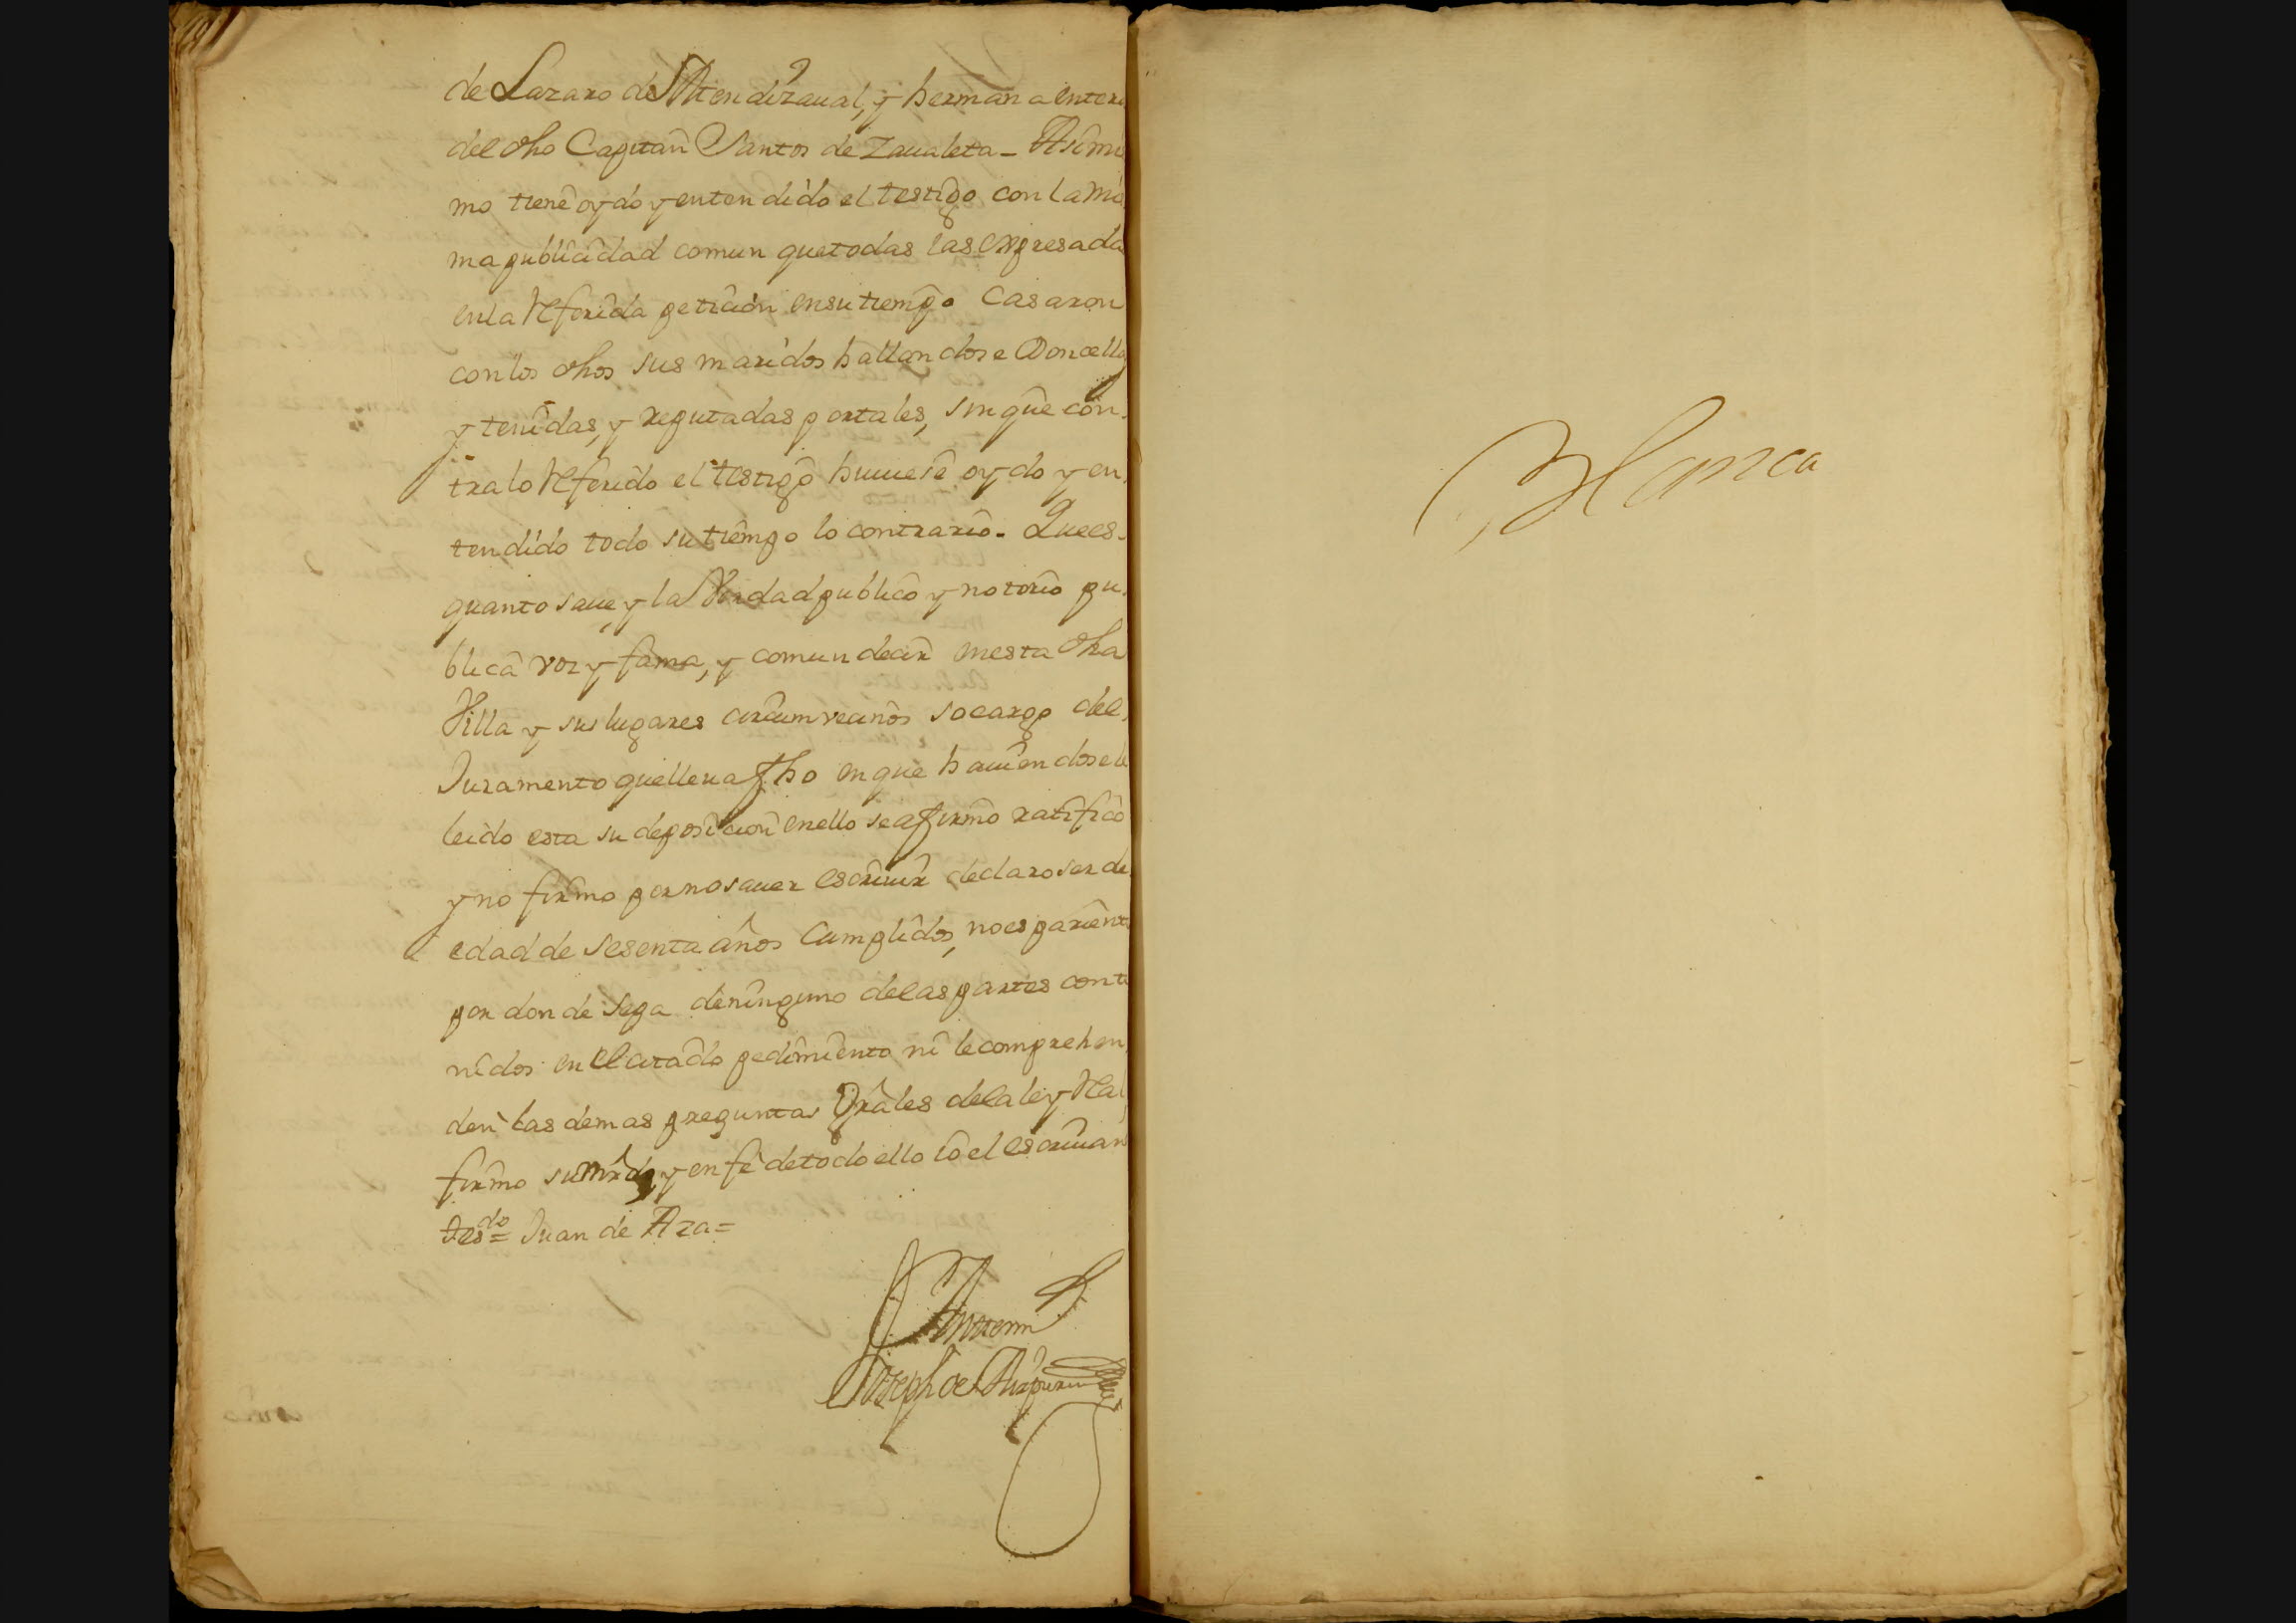 de Lazaro de Mendizaual, y hermana entera
del dho Capitan Santos de Zaualeta - Asimis
mo tiene oydo y entendido el testigo con la mis
ma publicidad comun que todas las expresadas
en la Referida peticion en su tiempo Casaron
con los dhos sus maridos hallandose Doncellas
y tenidas, y reputadas por tales, sin que con-
tra lo Referido el testigo huuiese oydo y en-
tendido todo su tiempo lo contrario. Que es-
quanto saue, y la Verdad publico y notorio pu-
blica voz y fama, y comun decir en esta dha
Villa y sus lugares circumvecinos so cargo del-
Juramento que lleua fho en que hauiendosele
leido esta su deposicion en ello se afirmo ratifico
y no firmo por no sauer escriuir declaro ser de
edad de sesenta años Cumplidos, no es pariente
por donde sepa de ninguno de las partes conte
nidos en el citado pedimiento ni le comprehen-
den las demas preguntas Grales de la ley Real
firmo su Mrd, y en fe de todo ello Io el escriuano
Juan de Aza =
Antemi
Joseph de Aizpuru
Blanca